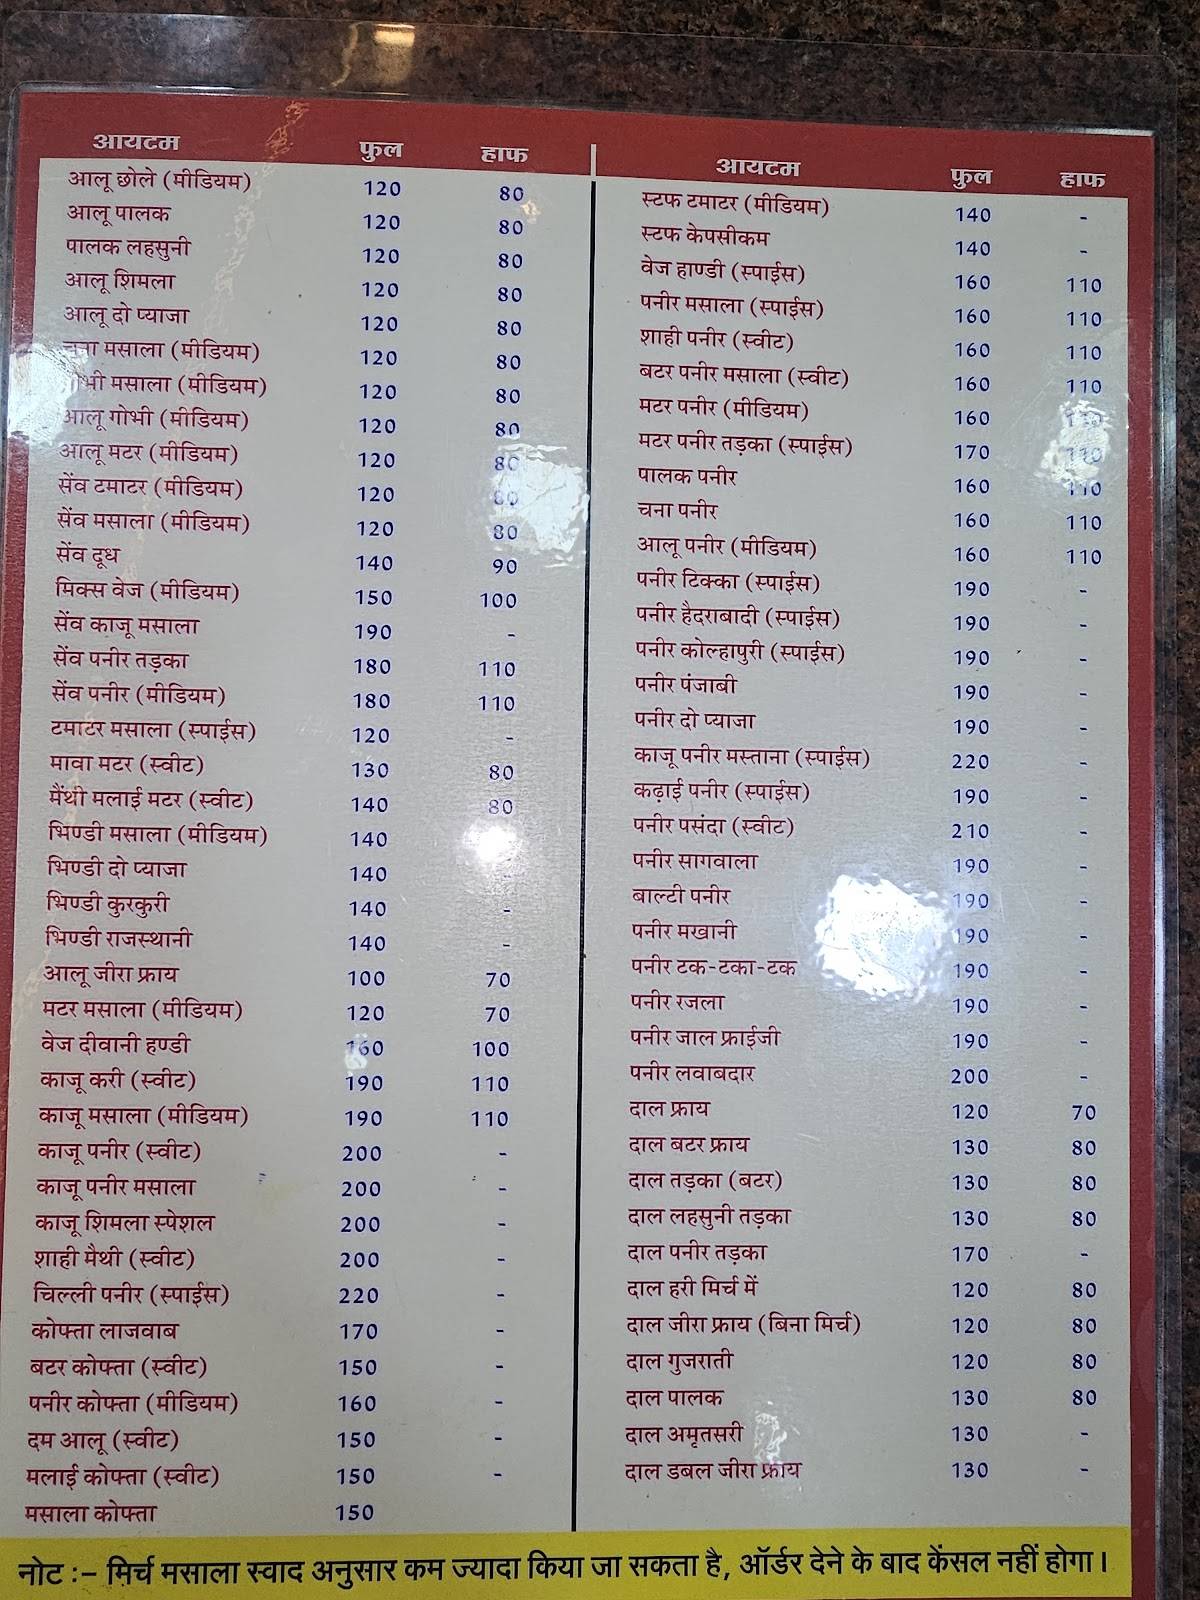 आयटम फुल हाफ
आलू छोले (मीडियम) 120 80
आलू पालक 120 80
पालक लहसुनी 120 80
आलू शिमला 120 80
आलू दो प्याजा 120 80
चना मसाला (मीडियम) 120 80
गोभी मसाला (मीडियम) 120 80
आलू गोभी (मीडियम) 120 80
आलू मटर (मीडियम) 120 80
सेंव टमाटर (मीडियम) 120 80
सेंव मसाला (मीडियम) 120 80
सेंव दूध 140 90
मिक्स वेज (मीडियम) 150 100
सेंव काजू मसाला 190 -
सेंव पनीर तड़का 180 110
सेंव पनीर (मीडियम) 180 110
टमाटर मसाला (स्पाईस) 120 -
मावा मटर (स्वीट) 130 80
मैंथी मलाई मटर (स्वीट) 140 80
भिण्डी मसाला (मीडियम) 140
भिण्डी दो प्याजा 140 -
भिण्डी कुरकुरी 140 -
भिण्डी राजस्थानी 140 -
आलू जीरा फ्राय 100 70
मटर मसाला (मीडियम) 120 70
वेज दीवानी हण्डी 160 100
काजू करी (स्वीट) 190 110
काजू मसाला (मीडियम) 190 110
काजू पनीर (स्वीट) 200 -
काजू पनीर मसाला 200 -
काजू शिमला स्पेशल 200 -
शाही मैथी (स्वीट) 200 -
चिल्ली पनीर (स्पाईस) 220 -
कोफ्ता लाजवाब 170 -
बटर कोफ्ता (स्वीट) 150 -
पनीर कोफ्ता (मीडियम) 160 -
दम आलू (स्वीट) 150 -
मलाई कोफ्ता (स्वीट) 150 -
मसाला कोफ्ता 150
आयटम फुल हाफ
स्टफ टमाटर (मीडियम) 140 -
स्टफ केपसीकम 140 -
वेज हाण्डी (स्पाईस) 160 110
पनीर मसाला (स्पाईस) 160 110
शाही पनीर (स्वीट) 160 110
बटर पनीर मसाला (स्वीट) 160 110
मटर पनीर (मीडियम) 160 110
मटर पनीर तड़का (स्पाईस) 170 110
पालक पनीर 160 110
चना पनीर 160 110
आलू पनीर (मीडियम) 160 110
पनीर टिक्का (स्पाईस) 190 -
पनीर हैदराबादी (स्पाईस) 190 -
पनीर कोल्हापुरी (स्पाईस) 190 -
पनीर पंजाबी 190 -
पनीर दो प्याजा 190 -
काजू पनीर मस्ताना (स्पाईस) 220 -
कढ़ाई पनीर (स्पाईस) 190 -
पनीर पसंदा (स्वीट) 210 -
पनीर सागवाला 190 -
बाल्टी पनीर 190 -
पनीर मखानी 190 -
पनीर टक-टका-टक 190 -
पनीर रजला 190 -
पनीर जाल फ्राईजी 190 -
पनीर लवाबदार 200 -
दाल फ्राय 120 70
दाल बटर फ्राय 130 80
दाल तड़का (बटर) 130 80
दाल लहसुनी तड़का 130 80
दाल पनीर तड़का 170 -
दाल हरी मिर्च में 120 80
दाल जीरा फ्राय (बिना मिर्च) 120 80
दाल गुजराती 120 80
दाल पालक 130 80
दाल अमृतसरी 130 -
दाल डबल जीरा फ्राय 130 -
नोट :– मिर्च मसाला स्वाद अनुसार कम ज्यादा किया जा सकता है, ऑर्डर देने के बाद केंसल नहीं होगा।